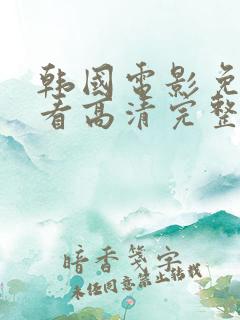 韩国电影免
看高清完整
暗香笺字
未经同意禁止转载